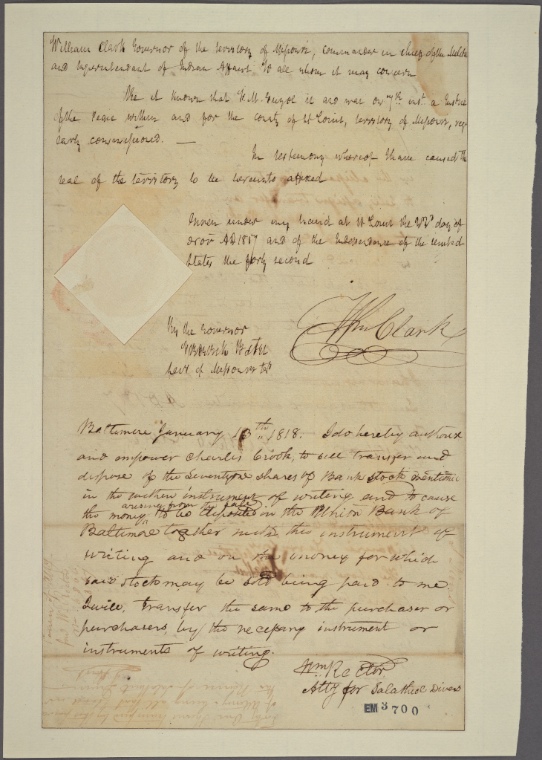 William Clark Governor of the territory of Missouri, Commander in chief of the Militia
and Superintendant of Indian Affairs. To all whom it may concern
Be it known that M. Guyol is and was on 7th inst. a Justice
of the Peace within and for the county of St Louis, territory of Missouri, reg
ularly commissioned. —
In testimony whereof I have caused the
seal of the territory to be hereunto affixed
Given under my hand at St Louis the day of
AD 1817 and of the Independence of the United
States the forty second
Wm Clark
By the Governor
Frederick Bates
Secy. of Missouri Ter
Baltimore January 13th 1818. I do hereby authorise
and empower Charles Crook to sell transfer and
dispose of the Seventy one shares of Bank stock mentioned
in the within instrument of writing and to cause
arising from sale
the money to be deposited in the Bank of
Baltimore together with this instrument of
writing and on the money for which
said stock may be sold being paid to me
I will transfer the same to the purchaser or
purchasers by the necessary instrument or
instruments of writing.
Wm Rector
Atty for Salathiel Divers
EM 3700